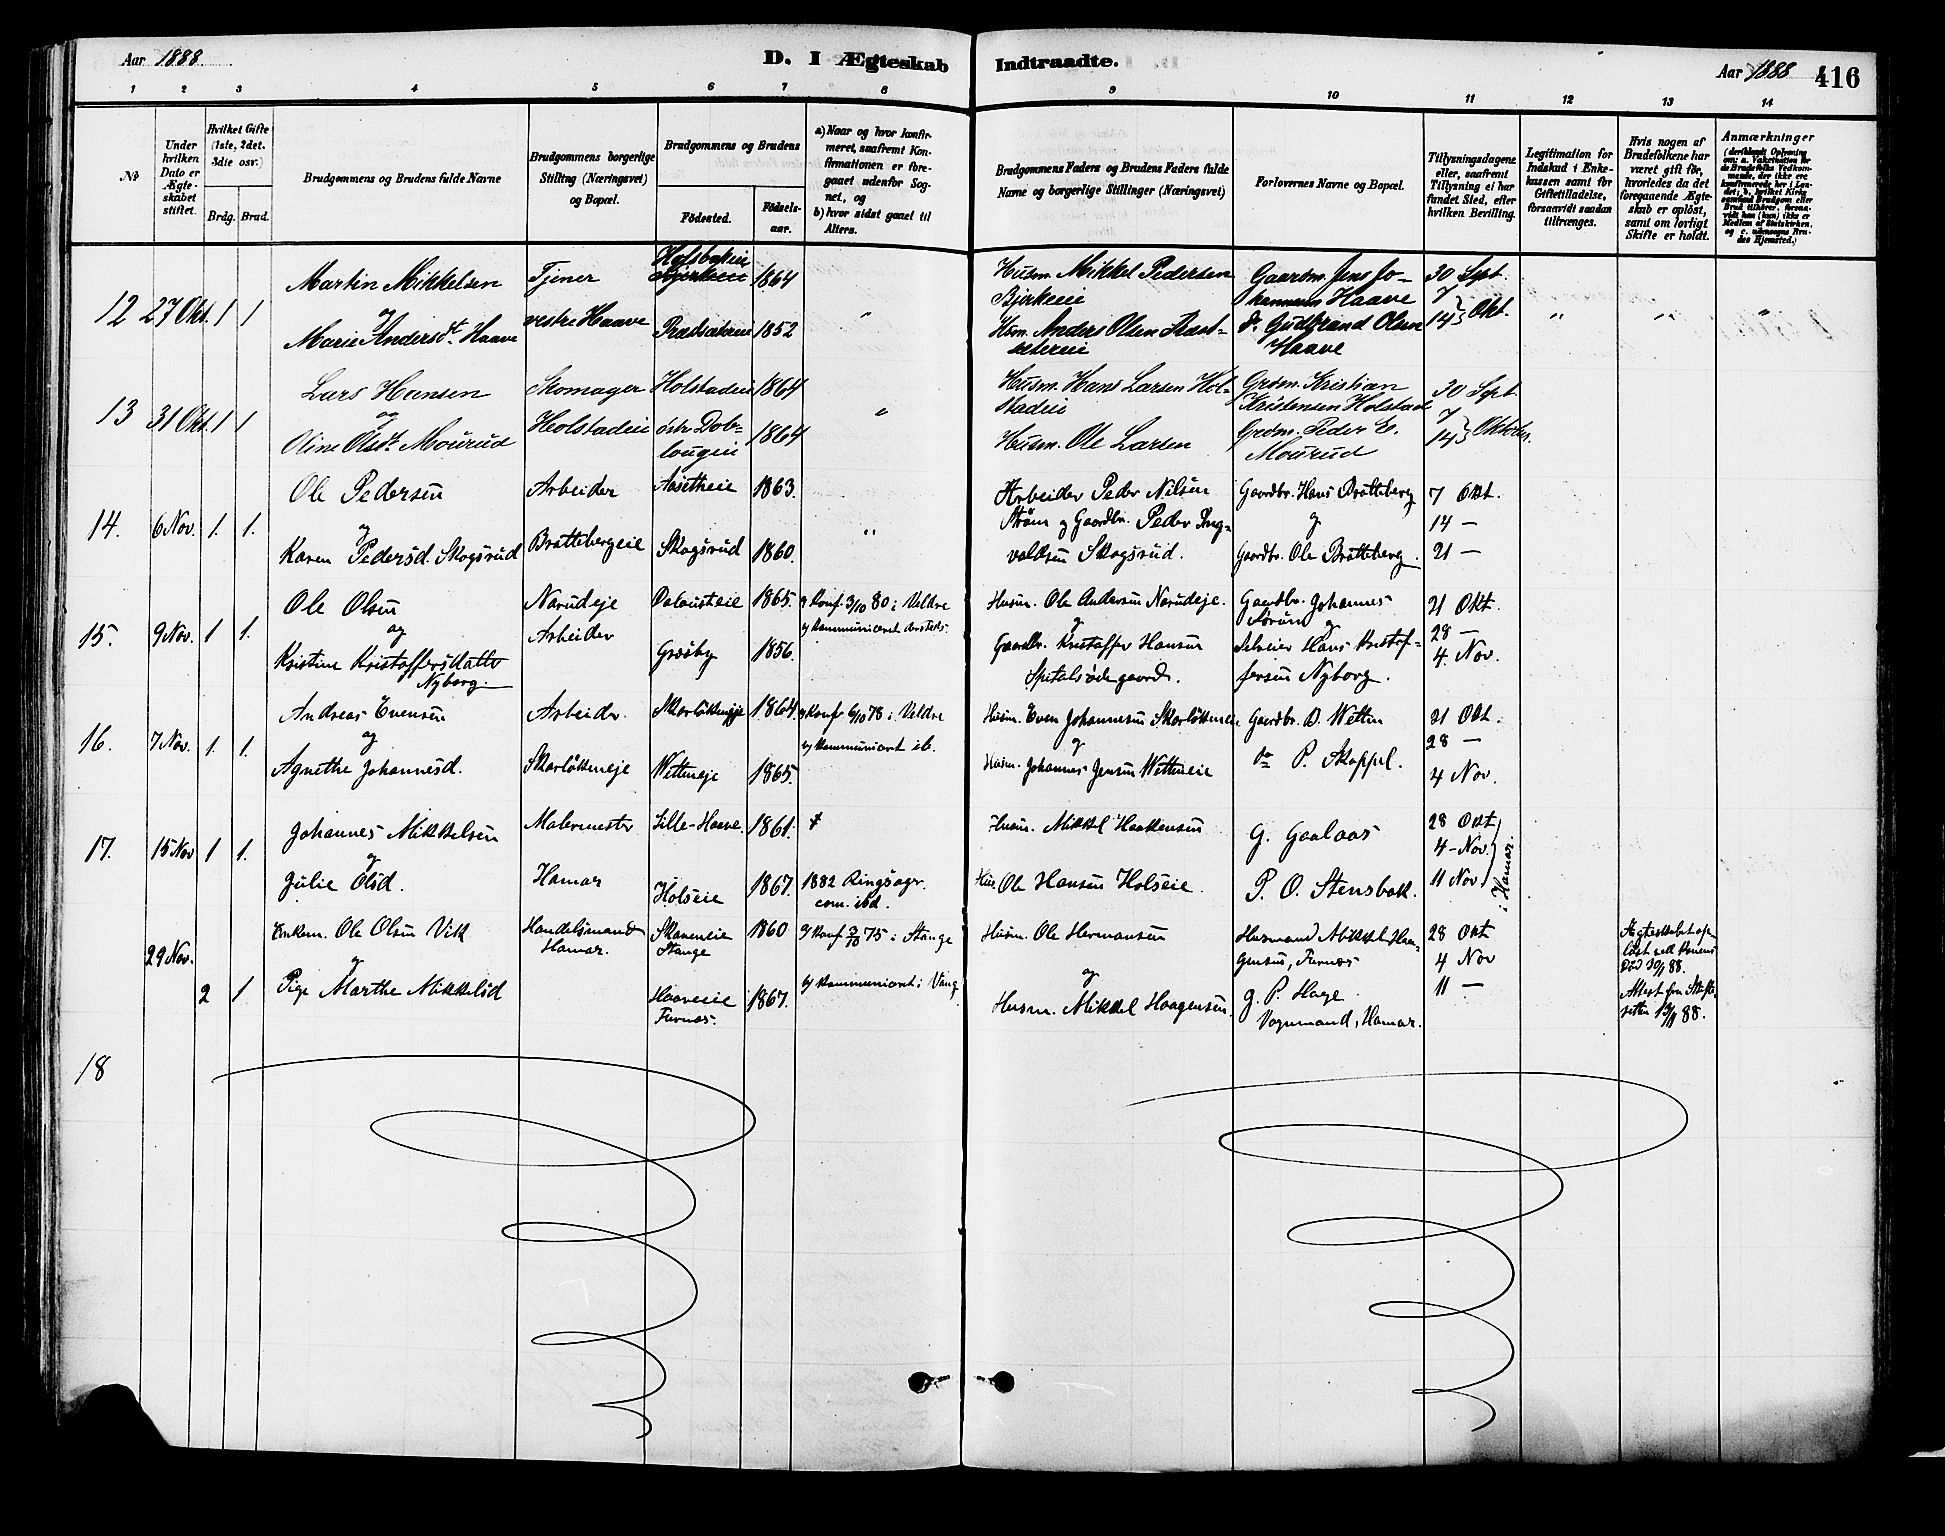 Aar 1888.
D. I Ægteskab
Indtraadte.
Aar 1888
416
1 2 3 4 5 6 7 8 9 10 11 12 13 14
No
Under hvilken Dato er Ægteskabet stiftet.
Hvilket Gifte (1ste, 2det, 3die osv.)
Brdg.
Brud.
Brudgommens og Brudens fulde Navne
Brudgommens borgerlige Stilling (Næringsvei) og Bopæl.
Brudgommens og Brudens
Födested.
Födsels-aar.
a) Naar og hvor konfirmeret, saafremt Konfirmationen er foregaaet udenfor Sognet, og
b) hvor sidst gaaet til Alters.
Brudgommens Faders og Brudens Faders fulde Navne og borgerlige Stillinger (Næringsvei)
Forlovernes Navne og Bopæl.
Tillysningsdagene eller, saafremt Tillysning ei har fundet Sted, efter hvilken Bevilling.
Legitimation for Indskud i Enkekassen samt for Giftetilladelse, forsaavidt saadan tiltrænges.
Hvis nogen af Brudefolkene har været gift för, hvorledes da det foregaaende Ægteskab er oplöst, samt om lovligt Skifte er holdt.
Anmærkninger
12 27 Okt. 1 1
Martin Mikkelsen
og
Marie Andersdt. Haave
Tjener
vestre Haave
Bjerkeeie
1864
1852
"
Husm. Mikkel Pedersen
Bjerkeeie
Hsm. Anders Olsen
Gaardm. Jens Jo-
hannesen Haave
do. Gudbrand Olsen
Haave
30 Sept.
7
14 } Okt.
" " "
13 31 Okt. 1 1
Lars Hansen
og
Oline Olsdt. Mourud
Skomager
Holstadeie
Holstadeie
östr Dob-
lougeie
1864
1864
"
Husm. Hans Larsen Hol-
stadeie
Husm. Ole Larsen
Grdm. Kristian
Kristensen Holstad
Grdm. Peder E.
Mourud
30 Sept
7
14 } Oktober.
14. 6 Nov. 1. 1.
Ole Pedersen
og
Karen Pedersd. Skogsrud
Arbeider
Brattebergeie
Aasetheie
Skogsrud
1863.
1860.
"
Arbeider Peder Nilsen
Ström og Gaardbr. Peder Ing-
valdsen Skogsrud.
Gaardbr. Hans Bratteberg
og
Gaardbr. Ole Bratteberg
7 Okt.
14 —
21 —
15. 9 Nov. 1 1.
Ole Olsen
og
Kristine Kristoffersdatter
Nyborg
Narudeje
Arbeider
Græsby
1865.
1856.
a) Konf. 3/10 80 i Veldre
b) kommuniceret dersteds.
Husm. Ole Andersen Narudeje.
og
Gaardbr. Kristoffer Hansen
Spitalsödegaard.
Gaardbr. Johannes
Sörum og
Selveier Hans Kristof-
fersen Nyborg.
21 Okt.
28 —
4 Nov.
16. 7 Nov. 1. 1.
Andreas Evensen
og
Agnethe Johannesd.
Arbeider.
Skarlökkeneje
Skarlökkeneje
Wetteneje
1864.
1865.
a) Konf 6/10 78 i Veldre
b) kommuniceret ib.
Husm. Even Johannesen Skarlökkeneie
og
Husm. Johannes Jensen Wetteneie
Gaardbr. D. Wetten
do P. Skappel.
21 Okt.
28 —
4 Nov.
17. 15 Nov 1 1.
Johannes Mikkelsen
og
Julie Olsd.
Malermester
Hamar
Lille-Haave
Holseie
1861.
1867.
1882 Ringsager.
com. ibd.
Husm. Mikkel Haakensen
Hus. Ole Hansen Holseie.
G. Gaalaas
P. O. Stensbak.
28 Okt
4 - Nov.
11 Nov } i Hamar
29 Nov. 2 1
Enkem. Ole Olsen Vik
og
Pige Marthe Mikkelsd
Handelsmand
Hamar.
Skaveneie
Stange
Haaveeie
Furnæs.
1860
1867.
a) Konf 3/10 75 i Stange
b) kommuniceret i Vang
Husm. Ole Hermansen
og
Husm. Mikkel Haagensen
Husmand Mikkel Haa-
gensen, Furnæs
g. P. Hage
Vognmand, Hamar.
28 Okt
4 Nov
11 —
Ægteskabet op-
löst ved Konens
Död 30/1 88.
Attest fra Skifte-
retten 13/11 88.
18